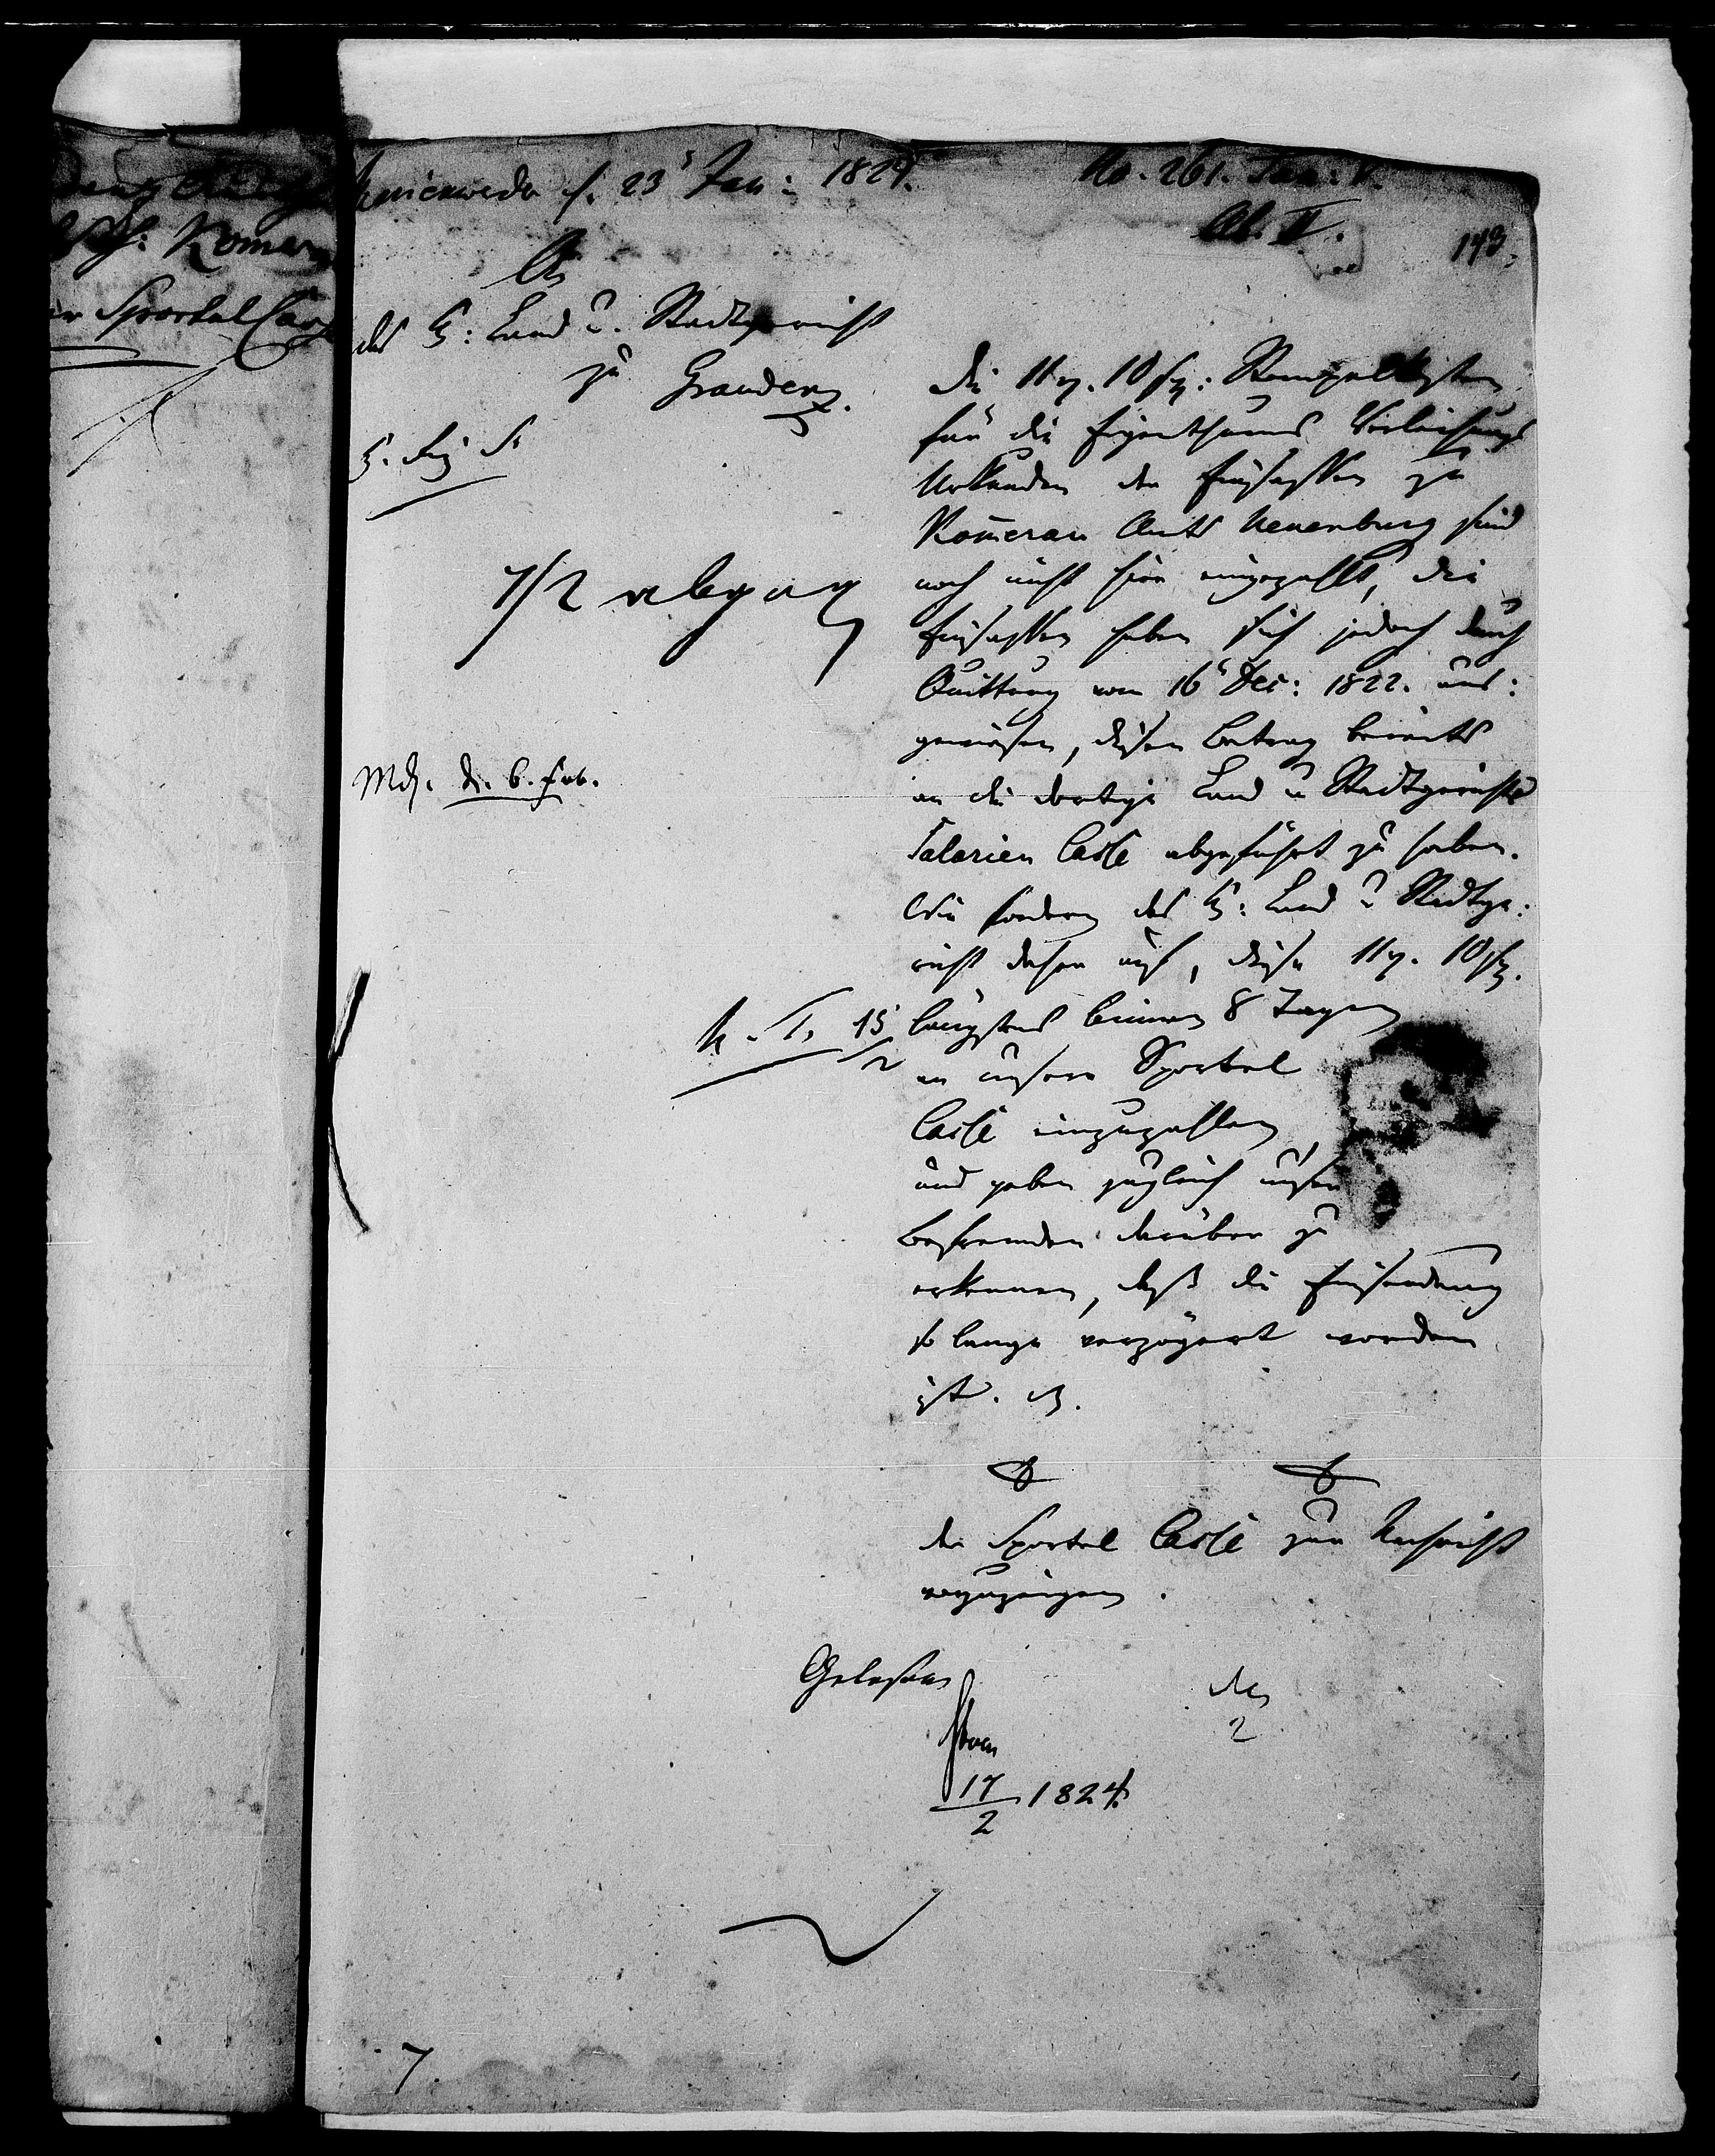 Marienwerder d. 23' Jan: 1824.
No. 261. Jan: V.
Ab. II.
143.
An
das K: Land u. Stadtgericht
zu Graudenz.
Die 11 r. 10 sg: Stempelkosten
für die Eigenthums Verleihungs
Urkunden der Einsassen zu
Komerau Amts Neuenburg sind
noch nicht hier eingezahlt, die
Einsassen haben sich jedoch durch
Quittung vom 16' Dec: 1822. aus:
gewiesen, diesen Betrag bereits
an die dortige Land u Stadtgerichts
Salarien Casse abgeführt zu haben.
Wir fordern das K: Land u Stadtge:
richt daher auf, diese 11 r. 10 sg.
längstens binnen 8 Tagen
an unsere Sportel
Casse einzuzahlen
und geben zugleich unser
Befremden darüber zu
erkennen, daß die Einsendung
so lange verzögert worden
ist.
7/2 abgeg
Md. d. 6. Feb.
15
/2
der Sportel Casse zur Nachricht
vorzuzeigen.
Gelesen
17
2 1824.
2
7
Komerau
Sportel Cass